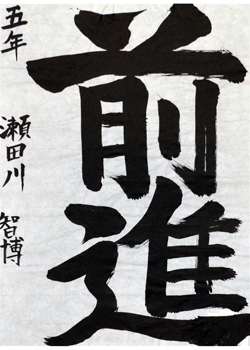 前進
五年 瀬田川 智博